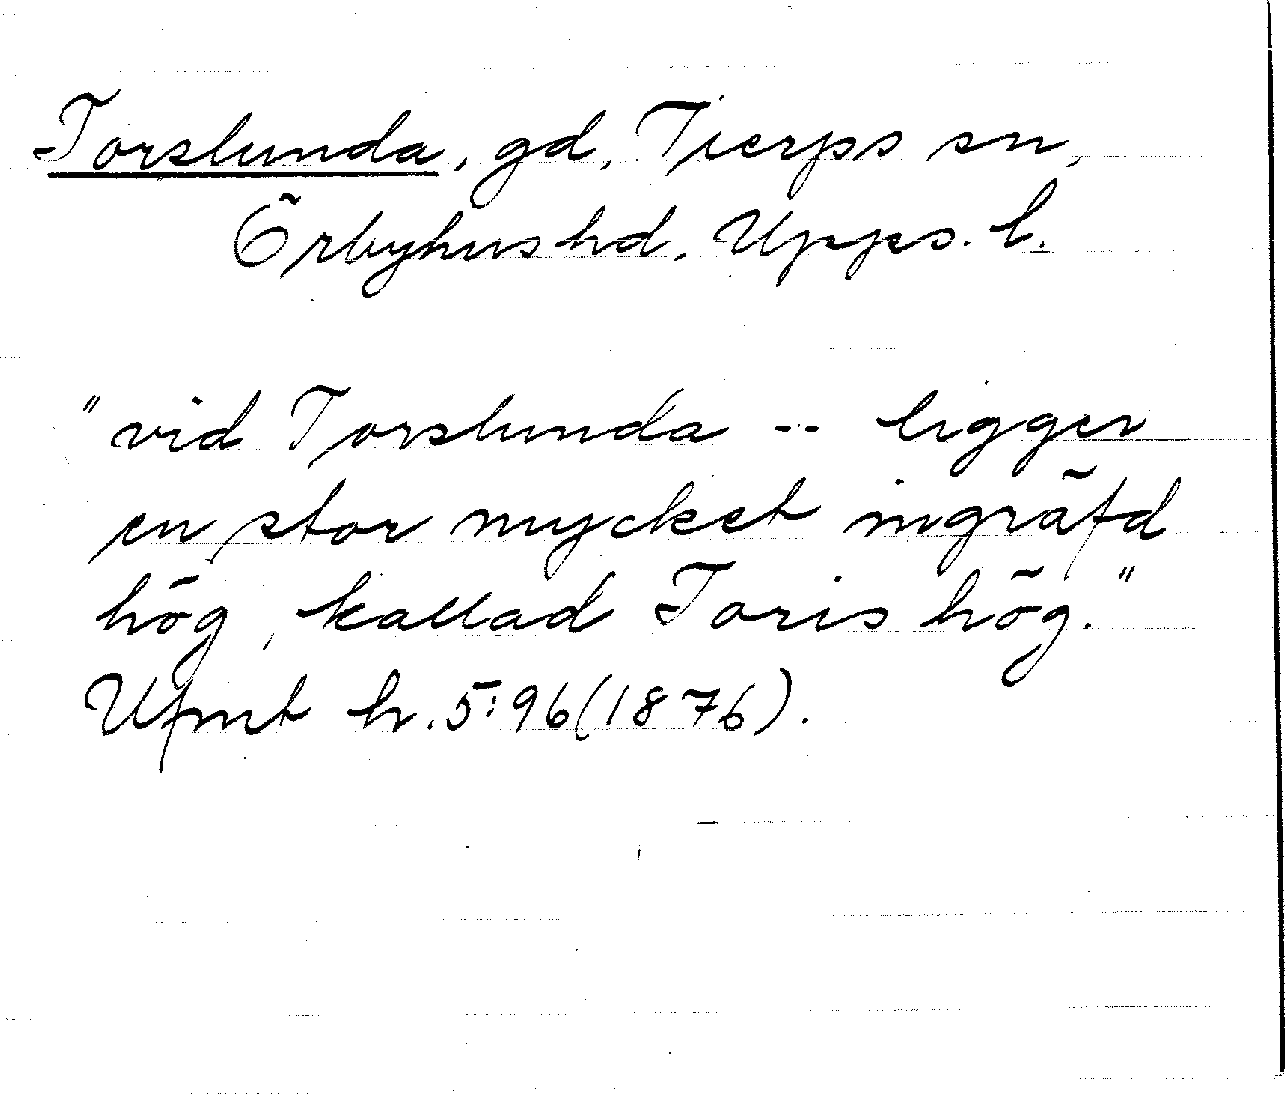 Torslunda, gd, Tierps sn,
Örbyhus hd, Upps. l.
"vid Torslunda -- ligger
en stor mycket ingräfd
hög, kallad Toris hög."
Ufmt h. 5:96 (1876).